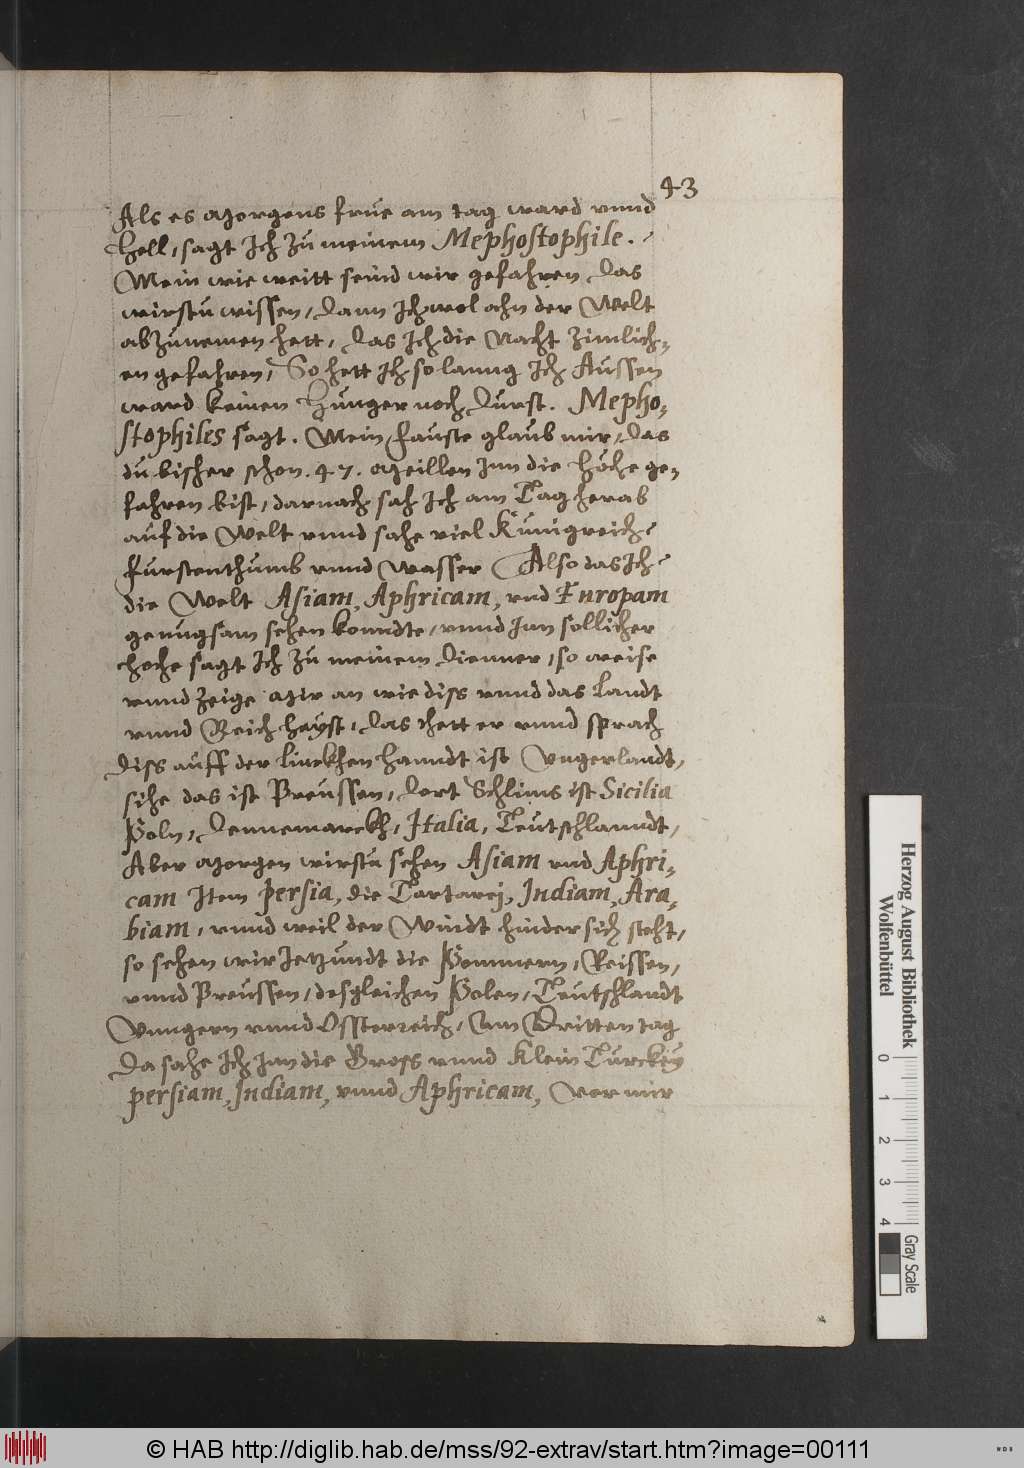 43
Als es Morgens frue am tag ward vnnd
Hell, sagt Ich zu meinem Mephostophile.
Mein wie weitt seind wir gefahren das
wirstu wissen, dann Ich wol ahn der Welt
abzunemen hett, das Ich die Nacht zimlich-
en gefahren, So hett Ich so lanng Ich Aussen
ward keinen Hunger noch Durst. Mepho-
stophiles sagt. Mein Fauste glaub mir, das
du bisher schon .47. Meillen Inn die Höhe ge-
fahren bist, darnach sah Ich am Tag herab
auf die Welt vnnd sahe viel Kunigreich
Furstenthumb vnnd Wasser Also das Ich
die Welt Asiam, Aphricam, vnd Europam
genugsam sehen konndte, vnnd Inn sollicher
hohe sagt Ich zu meinem Dienner, so weise
vnnd zeige Mir an wie diss vnnd das Landt
vnnd Reich hayst, das thett er vnnd sprach
Diss auff der linckhen Hanndt ist Vngerlandt,
sihe das ist Preussen, dort Schlims ist Sicilia
Poln, Dennemarckh, Italia, Teutschlanndt,
Aber Morgen wirstu sehen Asiam vnd Aphri-
cam Item Persia, die Tartarej, Indiam, Ara-
biam, vnnd weil der Windt hinder sich steht,
so sehen wir Jetzundt die Pommern, Reissen,
vnnd Preussen, desgleichen Polen, Teutschlandt
Vnngern vnnd Ossterreich, Am Dritten tag
Da sahe Ich Inn die Gross vnnd Klein Turckey
Persiam, Indiam, vnnd Aphricam, Vor mir
Herzog August Bibliothek
Wolfenbüttel
0 1 2 3 4
Gray Scale
© HAB http://diglib.hab.de/mss/92-extrav/start.htm?image=00111
WDB